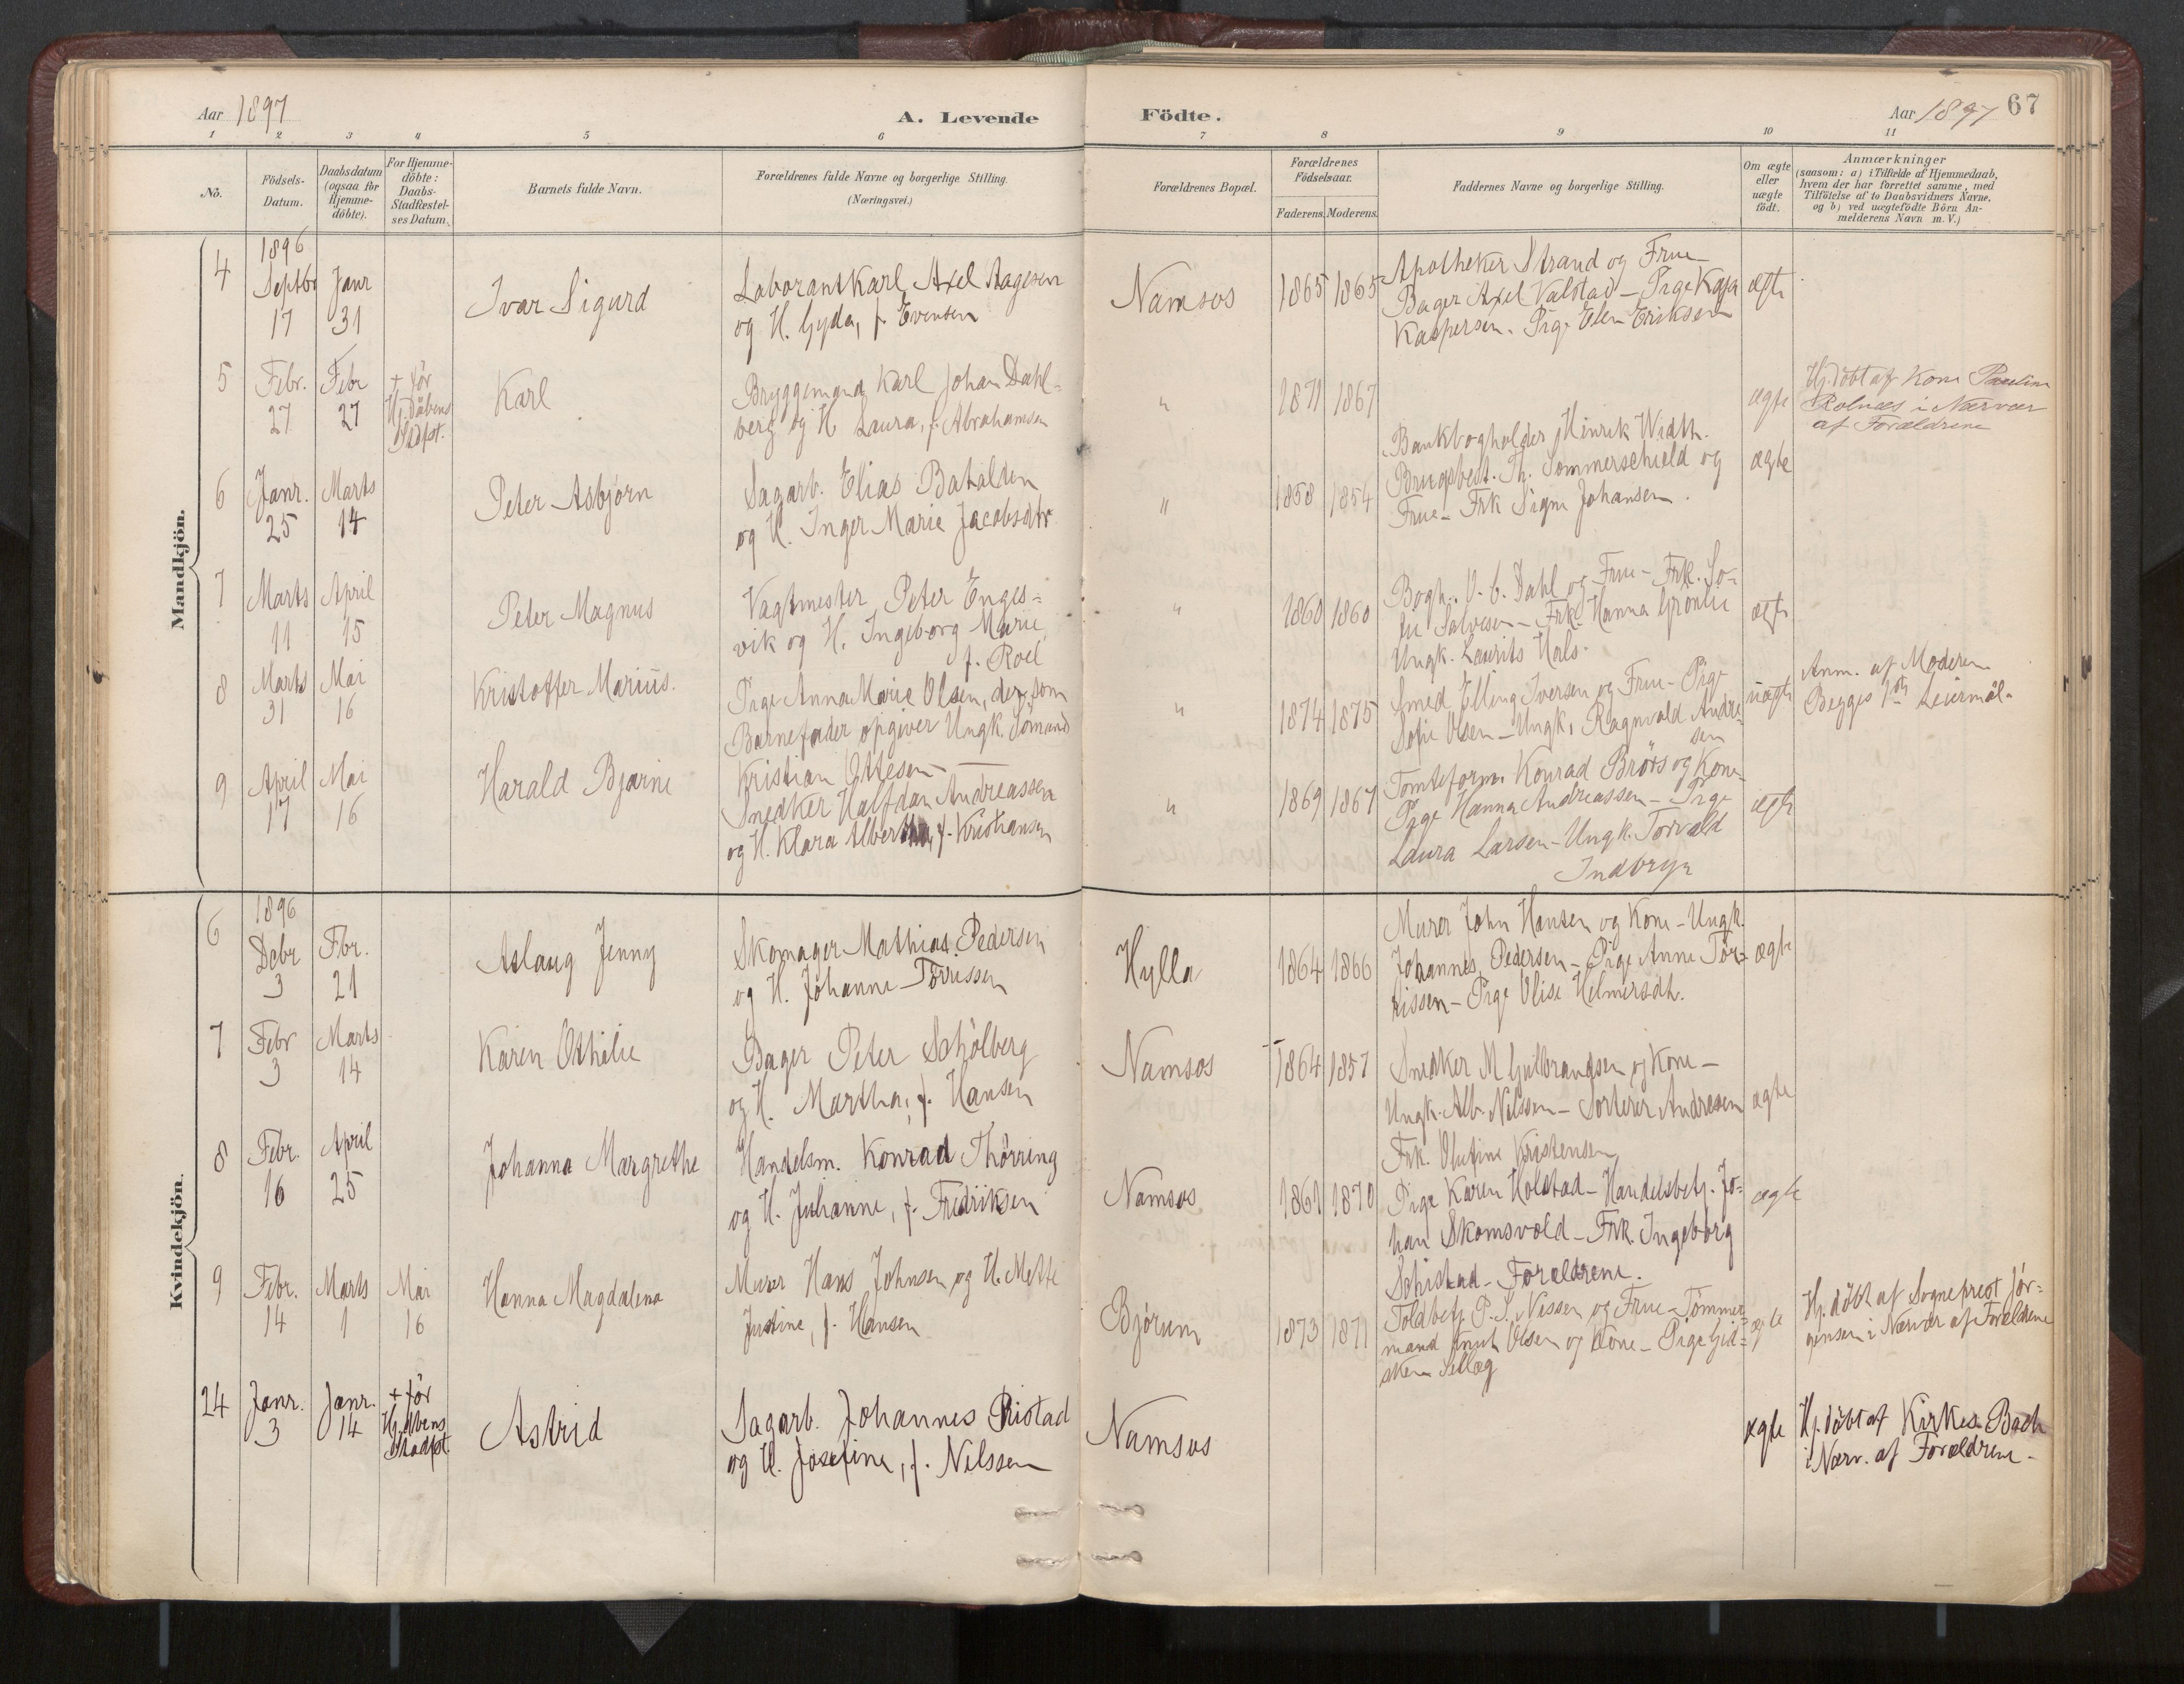 Aar 1897
A. Levende
Födte.
Aar 1897 67
1 2 3 4 5 6 7 8 9 10 11
No.
Födsels-
Datum.
Daabsdatum
(ogsaa for
Hjemme-
döbte).
For Hjemme-
döbte:
Daabs-
Stadfæstel-
ses Datum.
Barnets fulde Navn.
Forældrenes fulde Navne og borgerlige Stilling.
(Næringsvei.)
Forældrenes Bopæl.
Forældrenes
Födselsaar.
Faderens. Moderens.
Faddernes Navne og borgerlige Stilling.
Om ægte
eller
uægte
födt.
Anmærkninger
(saasom: a) i Tilfælde af Hjemmedaab,
hvem der har forrettet samme, med
Tilföielse af to Daabsvidners Navne,
og b) ved uægtefödte Börn An-
melderens Navn m. V.)
Mandkjön.
4
1896
Septbr
17
Janr
31
Ivar Sigurd
Laborant Karl Axel Aagesen
og H. Gyda, f. Evensen
Namsos
1865 1865
Apotheker Strand og Frue
Bager Axel Valstad - Pige Kaja
Kaspersen. Pige Elen Eriksen
ægte
5
Febr.
27
Febr
27
+ før
Hj.dåbens
Stadfst.
Karl
Bryggemand Karl Johan Dahl=
berg og H. Laura, f. Abrahamsen
"
1871 1867
ægte
Hj.döbt af Kone Pauline
Rolnæs i Nærvær
af Forældrene
6
Janr.
25
Marts
14
Peter Asbjørn
Sagarb. Elias Batalden
og H. Inger Marie Jacobsdtr
"
1858 1854
Bankbogholder Hinrik Width.
Brugsbest. Th. Sommerschield og
Frue - Frk Signe Johansen.
ægte
7
Marts
11
April
15
Peter Magnus
Vagtmester Peter Enges=
vik og H. Ingeborg Marie
f. Roel
"
1860 1860
Bogh. O. C. Dahl og Frue - Frk. So-
fie Salvesen - Frk. Hanna Grönlie
Ungk. Laurits Hals.
ægte
8
Marts
31
Mai
16
Kristoffer Marius.
Pige Anna Marie Olsen, der som
Barnefader opgiver Ungk. Sömand
Kristian Ottesen -
"
1874 1875
Smed Elling Iversen og Frue - Pige
Sofie Olsen - Ungk. Ragnvald Andre-
sen
uægte
Anm. af Moderen.
Begges 1ste Leiermål.
9
April
17
Mai
16
Harald Bjarne
Snedker Halfdan Andreassen
og H. Klara Alberthe, f. Kristiansen
"
1869 1867
Tomteform. Konrad Brörs og Kone
Pige Hanna Andreassen - Pige
Laura Larsen - Ungk. Torvald
Indbryn
ægte
Kvindekjön.
6
1896
Debr
3
Fbr.
21
Aslaug Jenny
Skomager Mathias Pedersen
og H. Johanne Törrissen
Hylla
1864 1866
Murer John Hansen og Kone - Ungk.
Johannes Pedersen - Pige Anne Tør=
rissen - Pige Olise Helmersdtr.
ægte
7
Febr
3
Marts
14
Karen Othilie
Bager Peter Schølberg
og H. Martha, f. Hansen
Namsos
1864 1857
Snedker M Gulbrandsen og Kone -
Ungk. Alb. Nilssen - Sorterer Andresen
Frk. Olufine Kristensen
ægte
8
Febr.
16
April
25
Johanna Margrethe
Handelsm. Konrad Thørring
og H. Julianne, f. Fredriksen
Namsos
1861 1870
Pige Karen Holstad - Handelsbetj. Jo=
han Skomsvold - Frk. Ingeborg
Schistad - Forældrene.
ægte
9
Febr.
14
Marts
1
Mai
16
Hanna Magdalena
Murer Hans Johnsen og H. Mette
Justine, f. Hansen
Bjørum
1873 1871
Toldbetj. P. S. Nissen og Frue - Tömmer
mand Knut Olsen og Kone - Pige Gid=
sken Sellæg
ægte
Hj.döbt af Sogneprest Jör=
gensen i Nærvær af Forældrene
24
Janr.
3
Janr.
14
+ før
Hj.dbens
Stadfst.
Astrid
Sagarb. Johannes Ristad
og H. Josefine, f. Nilssen
Namsos
ægte
Hj.döbt af Kirkes. Bach
i Nærv. af Forældrene -